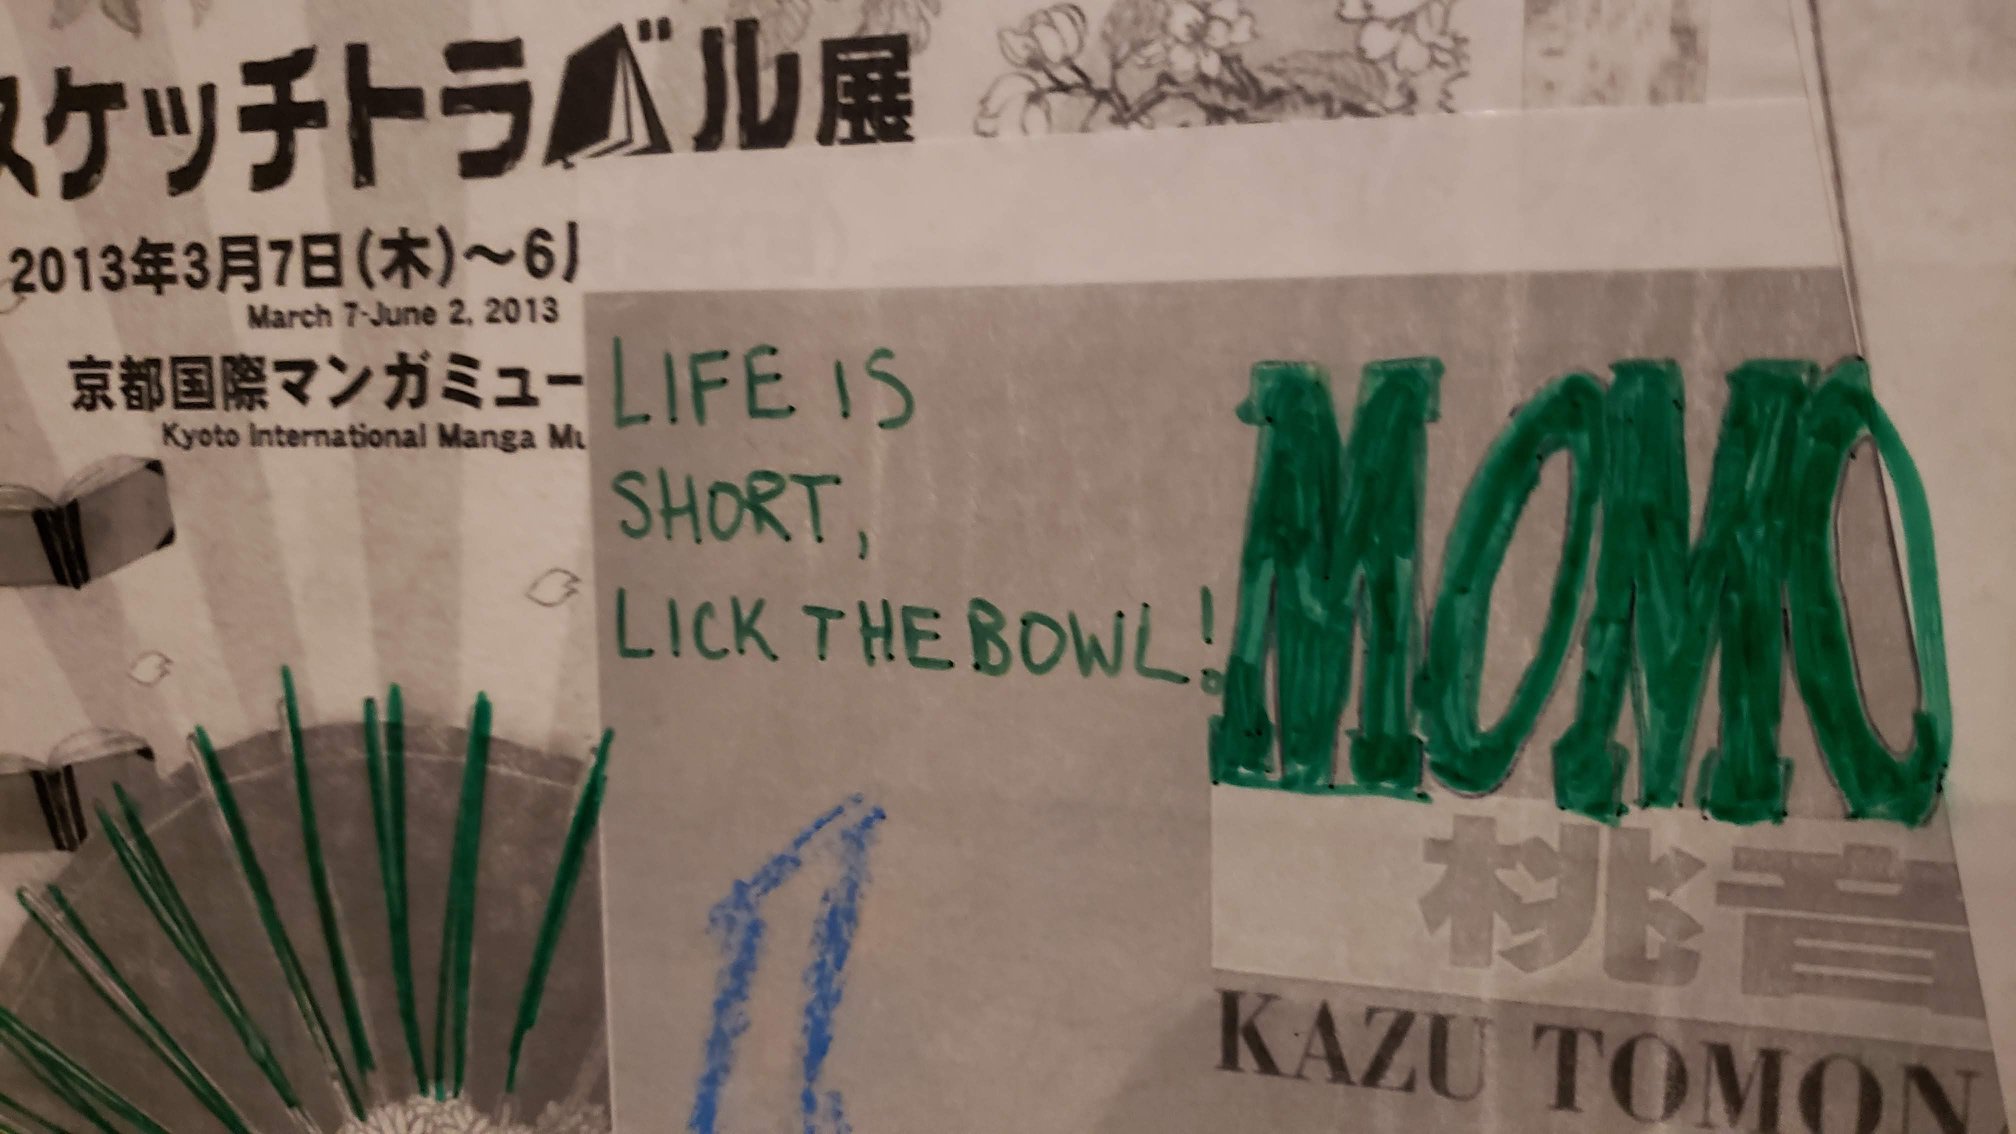 スケッチトラベル展
2013年3月7日(木)〜6月
March 7-June 2, 2013
京都国際マンガミュー
Kyoto International Manga Mu
LIFE IS
SHORT,
LICK THE BOWL!
MOMO
桃音
KAZU TOMON